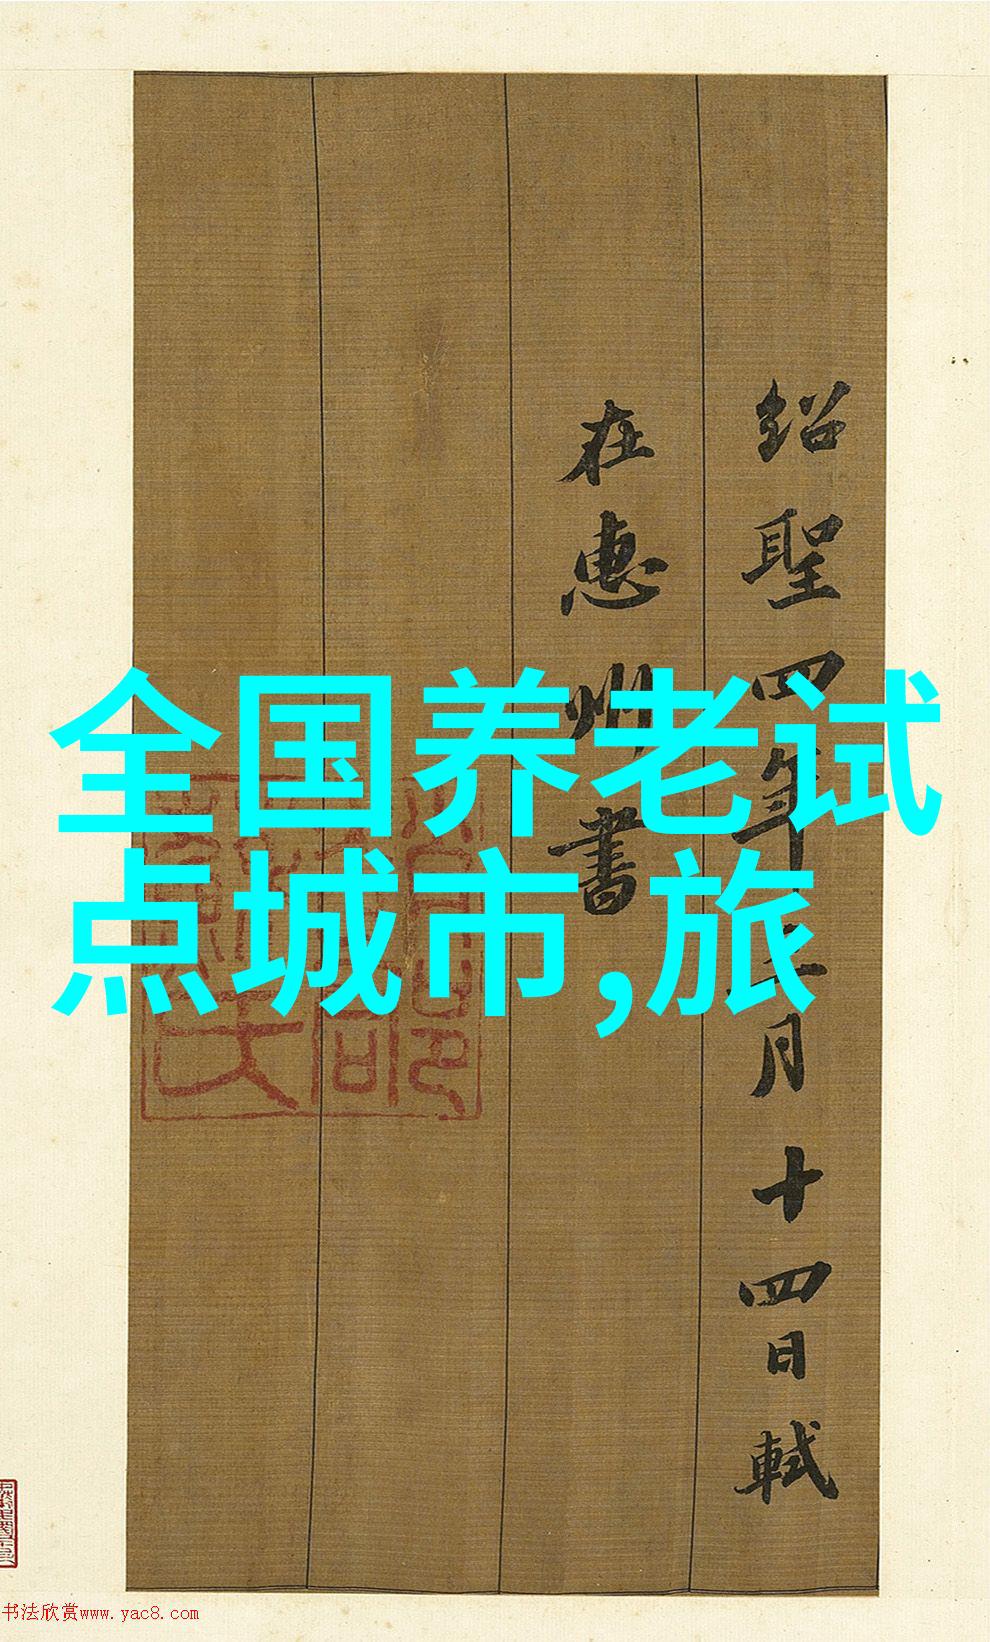 紹聖四年二月十四日軾
在惠州書
全国养老试
点城市,旅
书法欣赏www.yac8.com